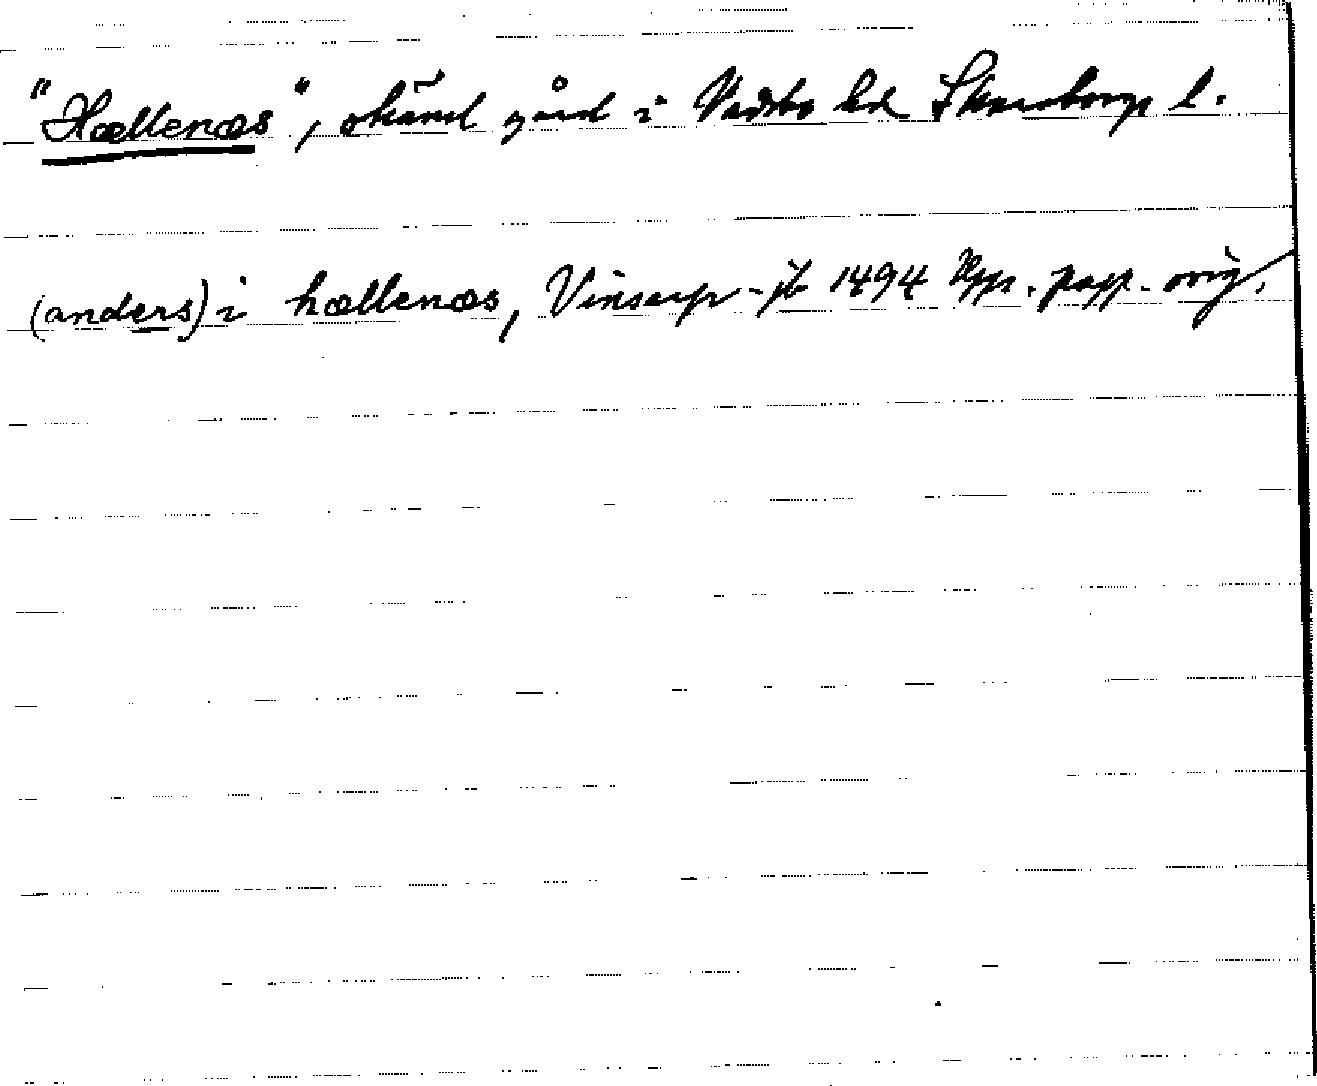 "Hællenæs", okänd gård i Vadsbo hd Skaraborgs l.
(anders) i hællenæs, Vinsarp-jb 1494 Upps. papp. orig.